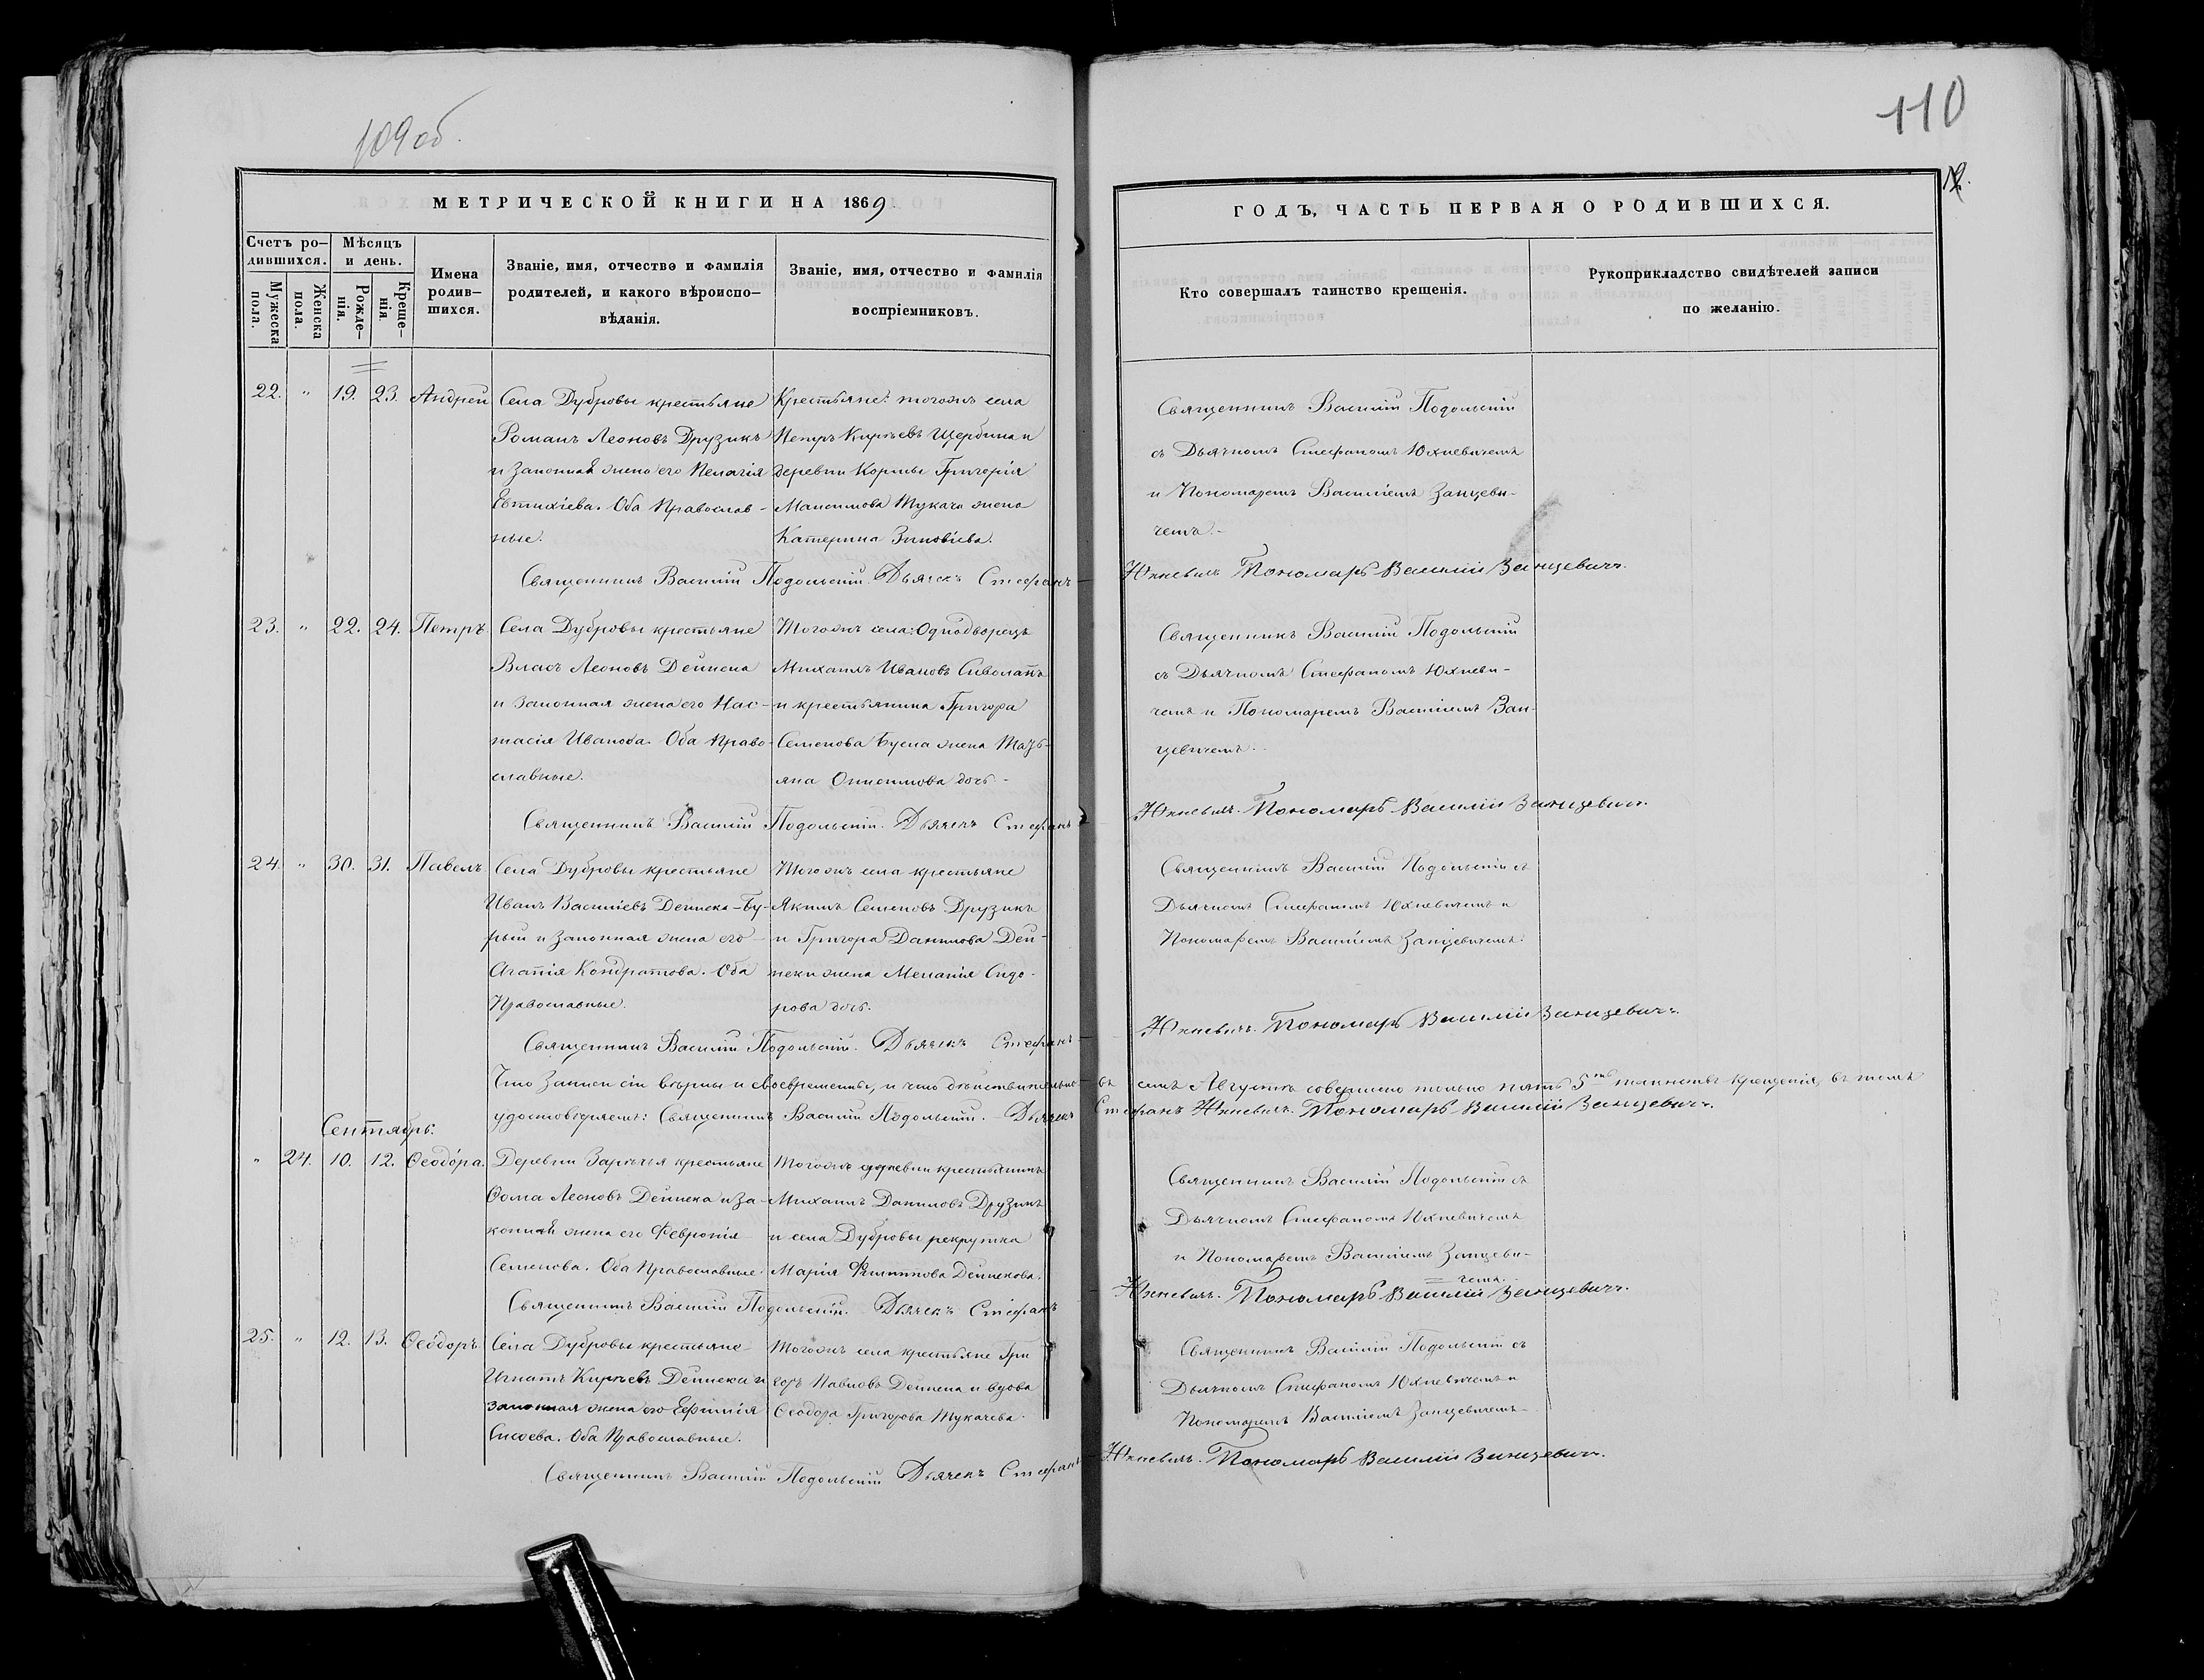 109 об.
110
МЕТРИЧЕСКОЙ КНИГИ НА 1869
Счетъ ро-
дившихся.
Мѣсяцъ
и день.
Мужеска
пола.
Женска
пола.
Рожде-
нія.
Креще-
нія.
Имена
родив-
шихся.
Званіе, имя, отчество и фамилія
родителей, и какого вѣроиспо-
вѣданія.
Званіе, имя, отчество и фамилія
воспріемниковъ.
22. " 19. 23. Андрей
Села Дубровы крестьяне
Романъ Леоновъ Друзикъ
и законная жена его Пелагія
Евтихіева. Оба Православ-
ные.
Крестьяне: тогожъ села
Петръ Киреевъ Щербина и
деревни Кормы Григорія
Максимова Тукача жена
Катерина Зиновіева.
Священникъ Василій Подольскій. Дьячекъ Стефанъ
23. " 22. 24. Петръ
Села Дубровы крестьяне
Власъ Леоновъ Дейнека
и законная жена его Нас-
тасія Иванова. Оба Право-
славные.
Тогожъ села: Однодворецъ
Михаилъ Ивановъ Сиволапъ
и крестьянина Григора
Семенова Бусла жена Тать-
яна Онисимова дочь.
Священникъ Василій Подольскій. Дьячекъ Стефанъ
24. " 30. 31. Павелъ
Села Дубровы крестьяне
Иванъ Василіевъ Дейнека-Бу-
рый и законная жена его
Агапія Кондратова. Оба
Православные.
Тогожъ села крестьяне
Якимъ Семеновъ Друзикъ
и Григора Данилова Дей-
неки жена Меланія Сидо-
рова дочь.
Священникъ Василій Подольскій. Дьячекъ Стефанъ
Что записи сіи вѣрны и своевременны, и что дѣйствительно
удостовѣряемъ: Священникъ Василій Подольскій. Дьячекъ
Сентябрь:
" 24. 10. 12. Ѳеодора.
Деревни Зарѣчья крестьяне
Ѳома Леоновъ Дейнека и за-
конная жена его Февронія
Семенова. Оба Православные.
Тогожъ деревни крестьянинъ
Михаилъ Даниловъ Друзикъ
и села Дубровы рекрутка
Марія Филиппова Дейнекова.
Священникъ Василій Подольскій. Дьячекъ Стефанъ
25. " 12. 13. Ѳеодоръ
Села Дубровы крестьяне
Игнатъ Киреевъ Дейнека и
законная жена его Ефимія
Сисоева. Оба Православные.
Тогожъ села крестьяне Гри
горъ Павловъ Дейнека и вдова
Ѳеодора Григорова Тукачева.
Священникъ Василій Подольскій Дьячекъ Стефанъ
ГОДЪ, ЧАСТЬ ПЕРВАЯ О РОДИВШИХСЯ.
Кто совершалъ таинство крещенія.
Рукоприкладство свидѣтелей записи
по желанію.
Священникъ Василій Подольскій
съ Дьячкомъ Стефаномъ Юхневичемъ
и Пономаремъ Василіемъ Занцеви-
чемъ.-
Юхневичъ. Пономарь Василій Занцевичъ.
Священникъ Василій Подольскій
съ Дьячкомъ Стефаномъ Юхневи-
чемъ и Пономаремъ Василіемъ Зан-
цевичемъ.
Юхневичъ. Пономарь Василій Занцевичъ.
Священникъ Василій Подольскій съ
Дьячкомъ Стефаномъ Юхневичемъ и
Пономаремъ Василіемъ Занцевичемъ.
Юхневичъ. Пономарь Василій Занцевичъ.
въ семъ Августѣ совершено только пять 5ть таинствъ крещенія, въ томъ
Стефанъ Юхневичъ. Пономарь Василій Занцевичъ.
Священникъ Василій Подольскій съ
Дьячкомъ Стефаномъ Юхневичемъ
и Пономаремъ Василіемъ Занцеви-
чемъ.
Юхневичъ. Пономарь Василій Занцевичъ.
Священникъ Василій Подольскій съ
Дьячкомъ Стефаномъ Юхневичемъ и
Пономаремъ Василіемъ Занцевичемъ
Юхневичъ. Пономарь Василій Занцевичъ.